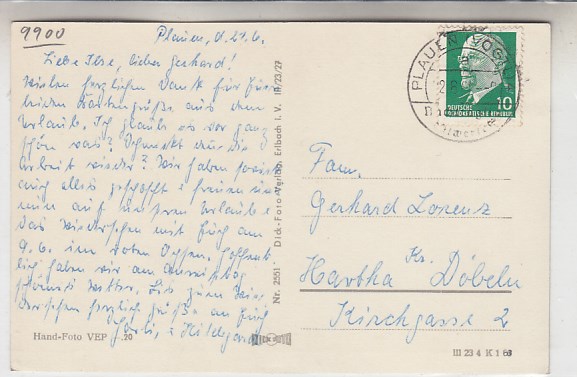 9900
Plauen, d. 21.6.
Liebe Ilse, lieber Gerhard!
Vielen herzlichen Dank für Eure
lieben Kartengrüße aus dem
Urlaub. Ich glaube es war ganz
schön was? Schmeckt die
Arbeit wieder? Wir haben
auch alles geschafft & freuen uns
nun auf unseren Urlaub &
das Wiedersehen mit Euch am
9.6. im roten Ochsen. Hoffent-
lich haben wir am
schönes Wetter. Bis zum Wie-
dersehen herzlich grüßen an Euch
& Hildegard
Hand-Foto VEP -.20
Nr. 2551 Dick-Foto-Verlag, Erlbach i. V. III/23/27
PLAUEN VOGTL
DEUTSCHE
DEMOKRATISCHE REPUBLIK
10
Fam.
Gerhard Lorenz
Hartha Kr. Döbeln
Kirchgasse 2
III 23 4 K 1 63